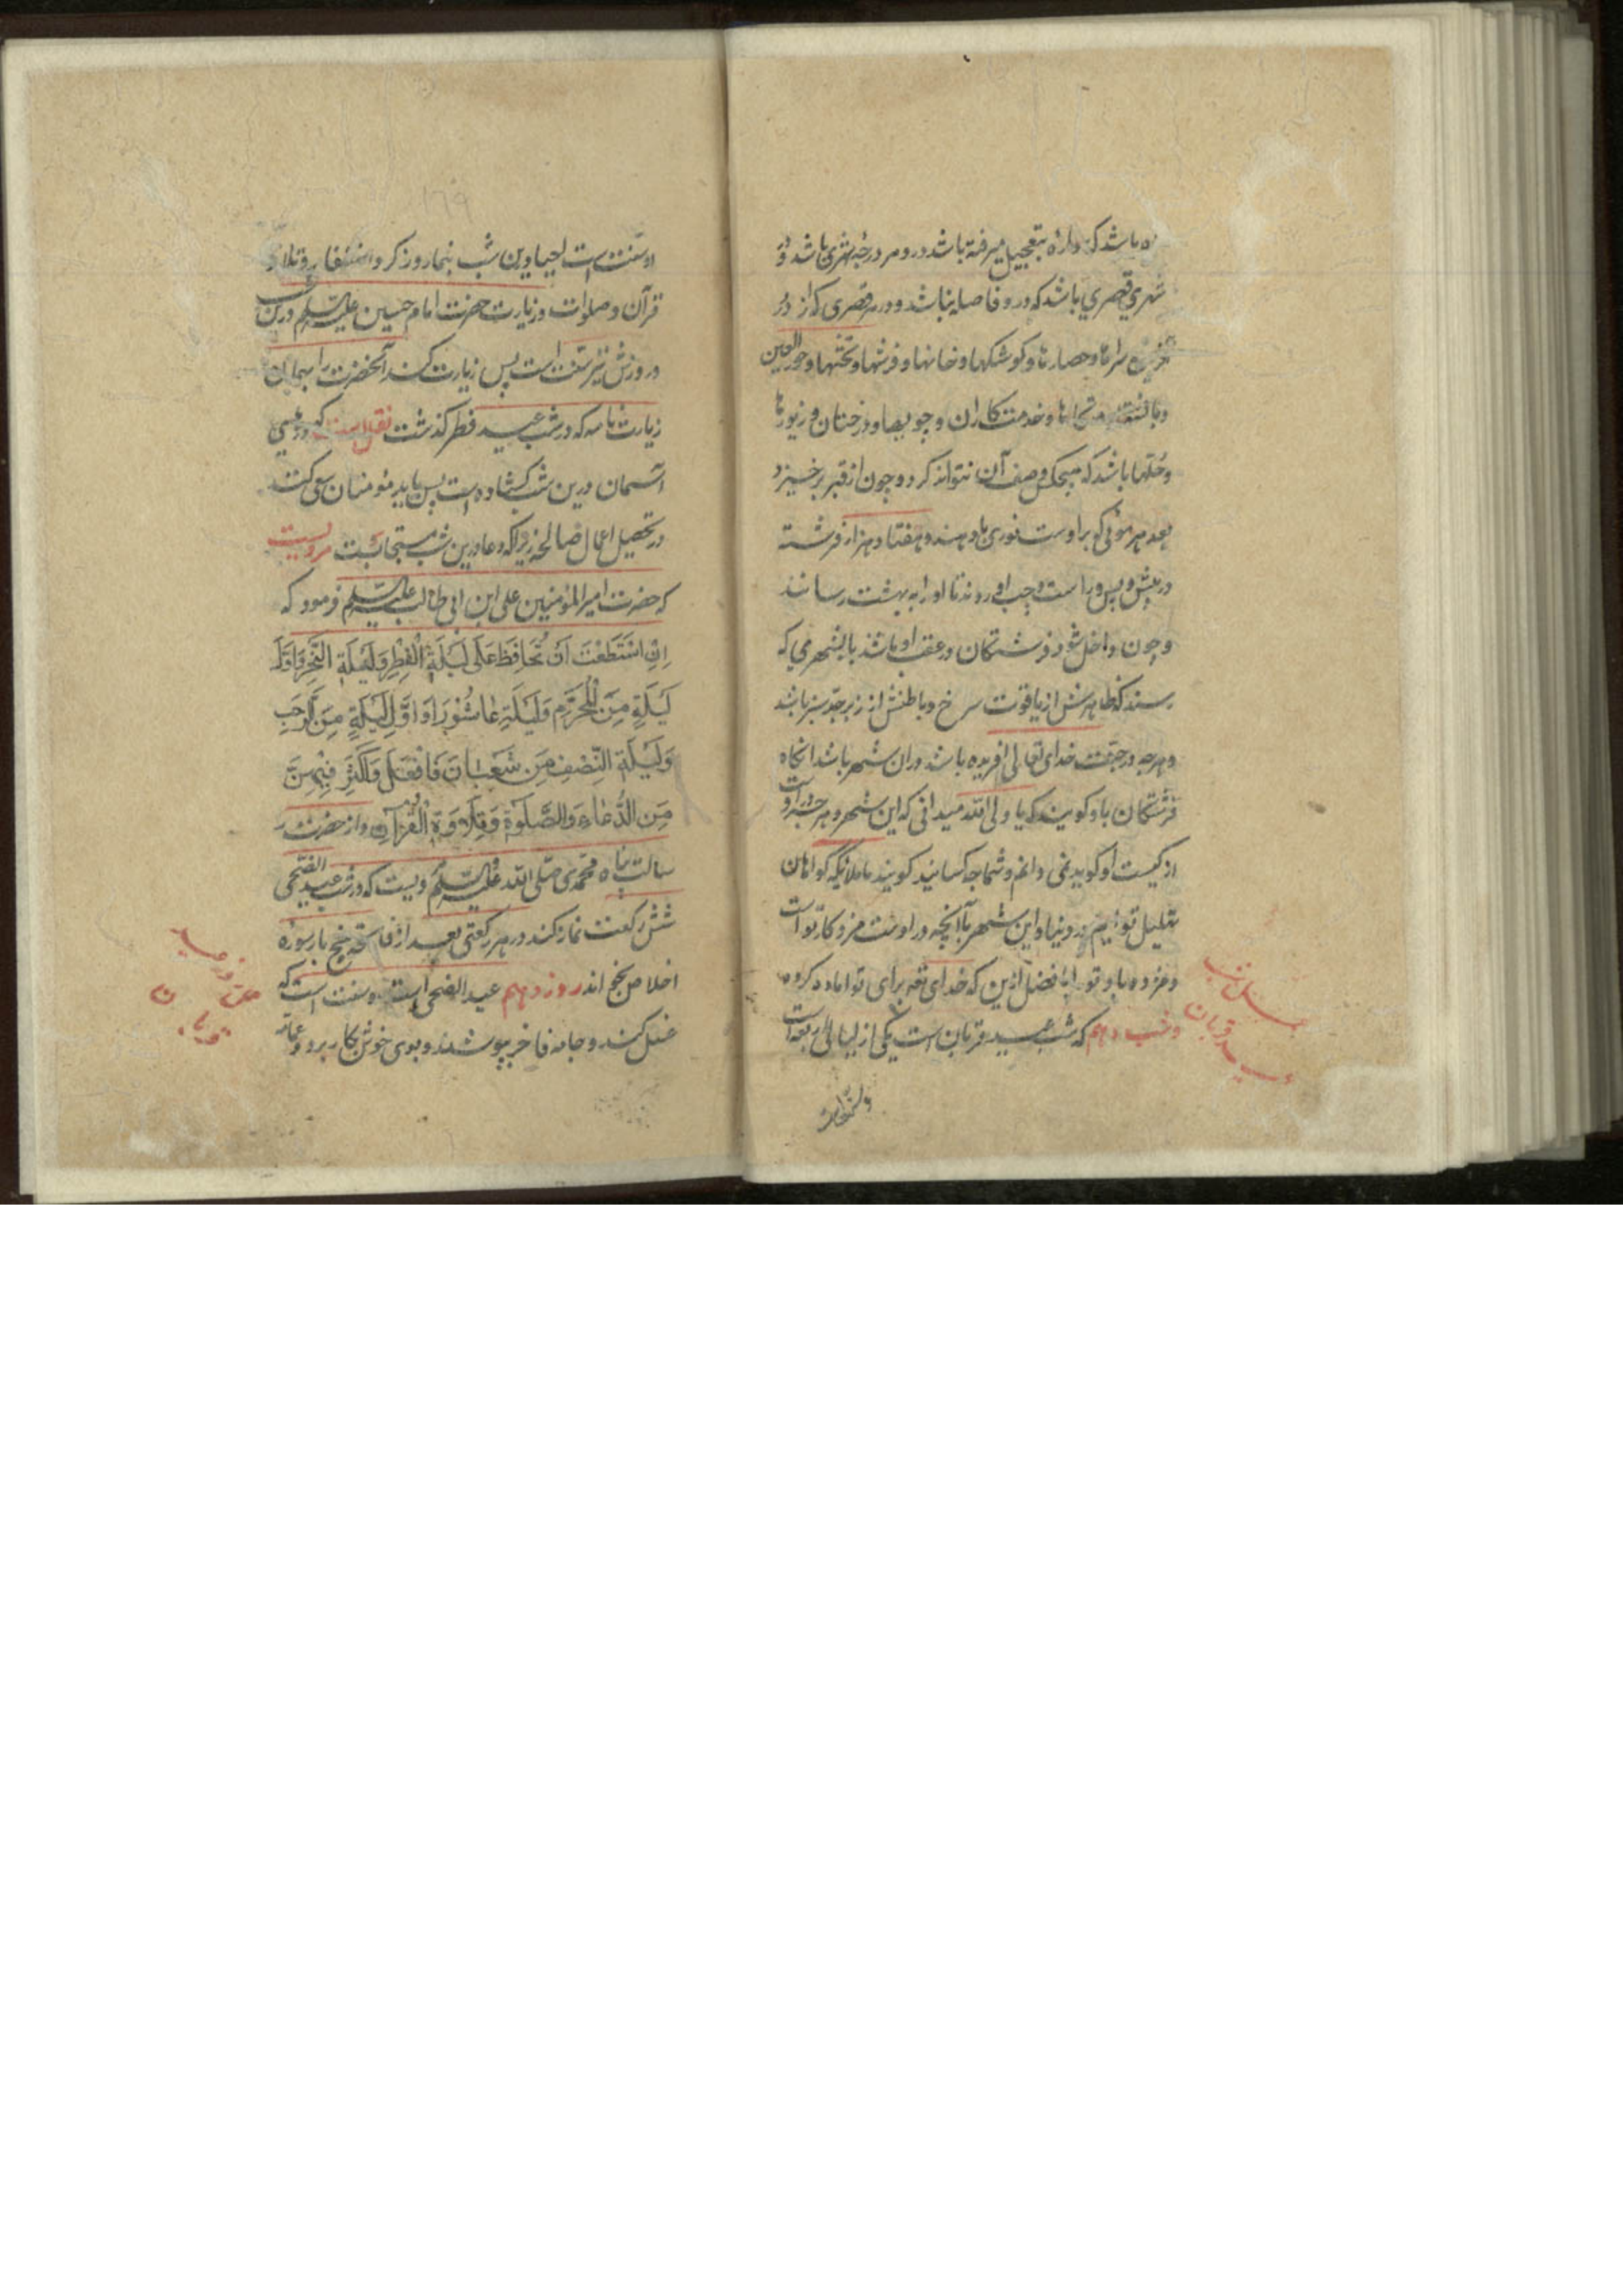 ه باشد که دارهٔ بتعجیل میرفته باشد درو و هر درجه شهری باشد و در
شهری قصری باشد که درو فاصله نباشد و در هر قصری که از در
سراها و حصارها و کوشکها و خانها و فرشها و تختها و حور العین
و بالشتها و خدمتکاران و جویها و درختان و زیورها
و حلّها باشد که هیچکس وصف آن نتواند کرد و چون از قبر برخیزد
بعدد هر موئی که بر اوست نوری باو دهند و هفتاد هزار فرشته
در پیش و پس و راست و چپ او روند تا او را به بهشت رسانند
و چون داخل شود فرشتگان در عقب او باشند بالشهری که
رسند که ظاهرش از یاقوت سرخ و باطنش از زبرجد سبز باشد
و هر چه در جنت خدای تعالی افریده باشد دران شهر باشد انکاه
فرشتکان باو کویند که یا ولی الله میدانی که این شهر و هر چه در اوست
از کیست او کوید نمی دانم و شما چه کسانید کویند ما ملائیکه کواهان
تهلیل تو ایم در دنیا و این شهر با آنچه در اوست مزد کار تو است
و مزده باد تو را بافضل ازین که خدای تعه برای تو اماده کرده
و شب دهم که شب عید قربان است یکی از لیالی اربعه است
عمل شب
عید قربان
و سنّت است
۱۶۹
او سنت است احیا و این شب بنماز و ذکر و استغفار و تلاوة
قرآن و صلوات و زیارت حضرت امام حسین علیه السّلم درین شب
و در روزش نیز سنّت است پس زیارت کند آنحضرت را بهمان
زیارت نامه که در شب عید فطر کذشت نقلست که درهای
آسمان درین شب کشاده است پس باید مؤمنان سعی کنند
در تحصیل اعمال صالحه زیرا که دعا درین شب مستجابست مرویست
که حضرت امیر المؤمنین علی ابن ابی طالب علیه السّلم فرمود که
اِنِ اسْتَطَعْتَ اَنْ تُحَافِظَ عَلَی لَیْلَةِ الْفِطْرِ وَلَیْلَةِ النَّحْرِ وَاَوَّلَ
لَیْلَةٍ مِنَ الْمُحَرَّمِ وَلَیْلَةِ عَاشُوْرَا وَاَوَّلِ لَیْلَةٍ مِنْ رَجَبِ
وَلَیْلَةِ النِّصْفِ مِن شَعْبَانَ فَافْعَلْ وَاَکْثِرْ فِیْهِنَّ
مِنَ الدُّعَاءِ وَالصَّلَوةِ وَتِلَاوَةِ الْقُرْآنِ و از حضرت ر
سالت پناه محمدی صلّی الله علیه و السّلم رویست که در شب عید الضحی
شش رکعت نماز کند در هر رکعتی بعد از فاتحه پنج بار سوره
اخلاص بخواند روز دهم عید الضحی است و سنت است که
غسل کنند و جامه فاخر پوشند و بوی خوش بکار برد و عمامه
عید
قربان